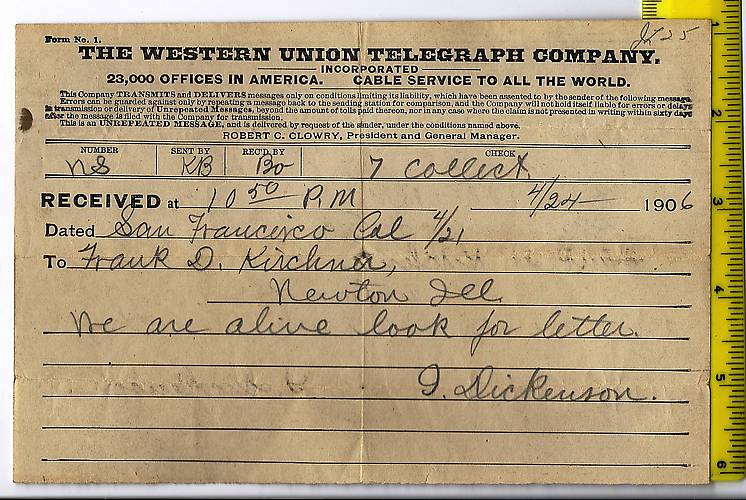 Form No. 1.
THE WESTERN UNION TELEGRAPH COMPANY.
INCORPORATED
23,000 OFFICES IN AMERICA. CABLE SERVICE TO ALL THE WORLD.
This Company TRANSMITS and DELIVERS messages only on conditions limiting its liability, which have been assented to by the sender of the following message.
Errors can be guarded against only by repeating a message back to the sending station for comparison, and the Company will not hold itself liable for errors or delays
in transmission or delivery of Unrepeated Messages, beyond the amount of tolls paid thereon, nor in any case where the claim is not presented in writing within sixty days
after the message is filed with the Company for transmission.
This is an UNREPEATED MESSAGE, and is delivered by request of the sender, under the conditions named above.
ROBERT C. CLOWRY, President and General Manager.
NUMBER SENT BY REC'D BY CHECK
NS KB Bo 7 Collect
RECEIVED at 10 50 P.M 4/24 1906
Dated San Francisco Cal 4/21
To Frank D. Kirchner,
Newton Ill.
We are alive look for letter.
I. Dickenson.
1
2
3
4
5
6